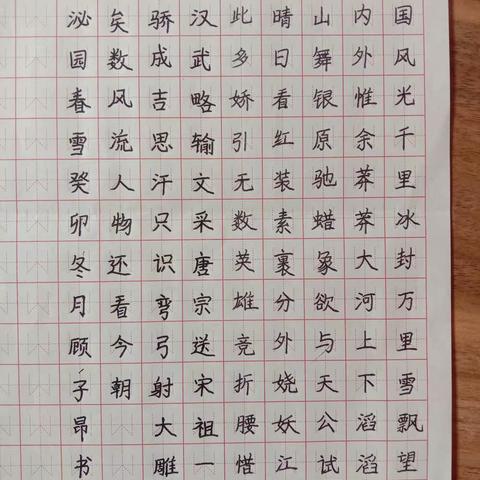 国风光千里冰封万里雪飘望
内外惟余莽莽大河上下滔滔
山舞银原驰蜡象欲与天公试
晴日看红装素裹分外娆妖江
此多娇引无数英雄竞折腰惜
汉武略输文采唐宗送宋祖一
骄成吉思汗只识弯弓射大雕
矣数风流人物还看今朝
泌园春雪癸卯冬月顾子昂书